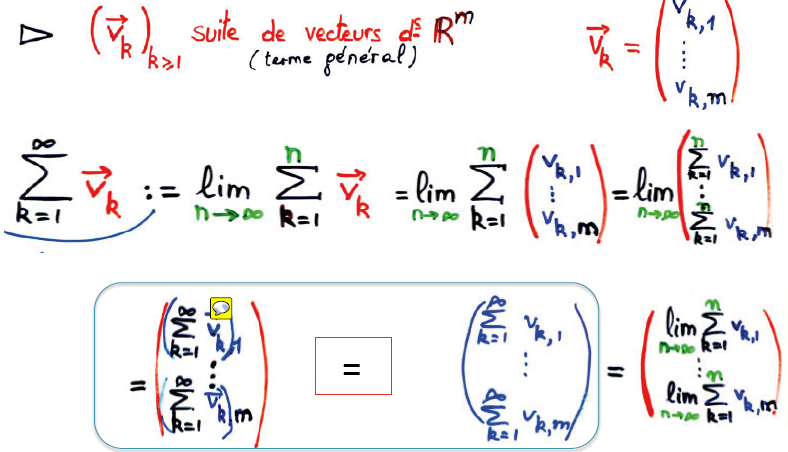 ▷ (v⃗_k)_{k≥1} suite de vecteurs ds ℝ^m v⃗_k = (v_{k,1} ⋮ v_{k,m})
(terme général)
∑_{k=1}^{∞} v⃗_k := lim_{n→∞} ∑_{k=1}^{n} v⃗_k = lim_{n→∞} ∑_{k=1}^{n} (v_{k,1} ⋮ v_{k,m}) = lim_{n→∞} (∑_{k=1}^{n} v_{k,1} ⋮ ∑_{k=1}^{n} v_{k,m})
= ((∑_{k=1}^{∞} v⃗_k)_{,1} ⋮ (∑_{k=1}^{∞} v⃗_k)_{,m}) = (∑_{k=1}^{∞} v_{k,1} ⋮ ∑_{k=1}^{∞} v_{k,m}) = (lim_{n→∞} ∑_{k=1}^{n} v_{k,1} ⋮ lim_{n→∞} ∑_{k=1}^{n} v_{k,m})